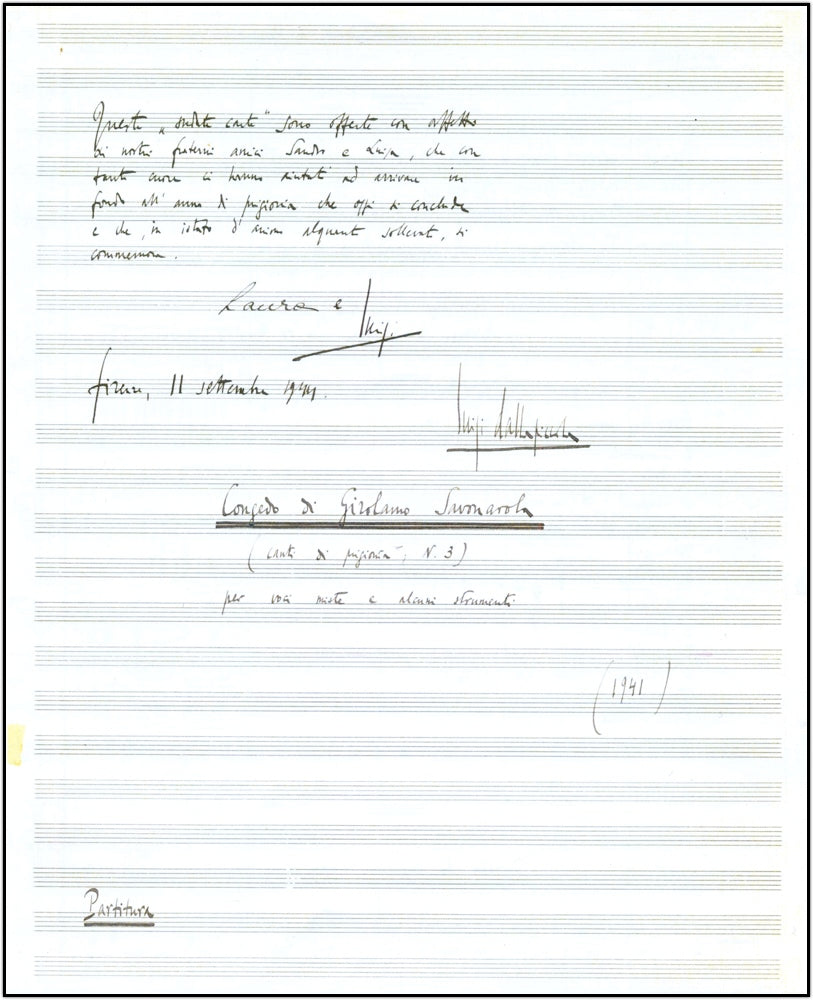 Queste „sudate carte" sono offerte con affetto
ai nostri fraterni amici Sandro e Luisa, che con
tanto cuore ci hanno aiutati ad arrivare in
fondo all'anno di prigionia che oggi si conclude
e che, in istato d'animo alquanto sollevato, si
commemora.
Laura e Luigi.
Firenze, 11 settembre 1944.
Luigi Dallapiccola
Congedo di Girolamo Savonarola
("Canti di prigionia", N. 3)
per voci miste e alcuni strumenti
(1941)
Partitura